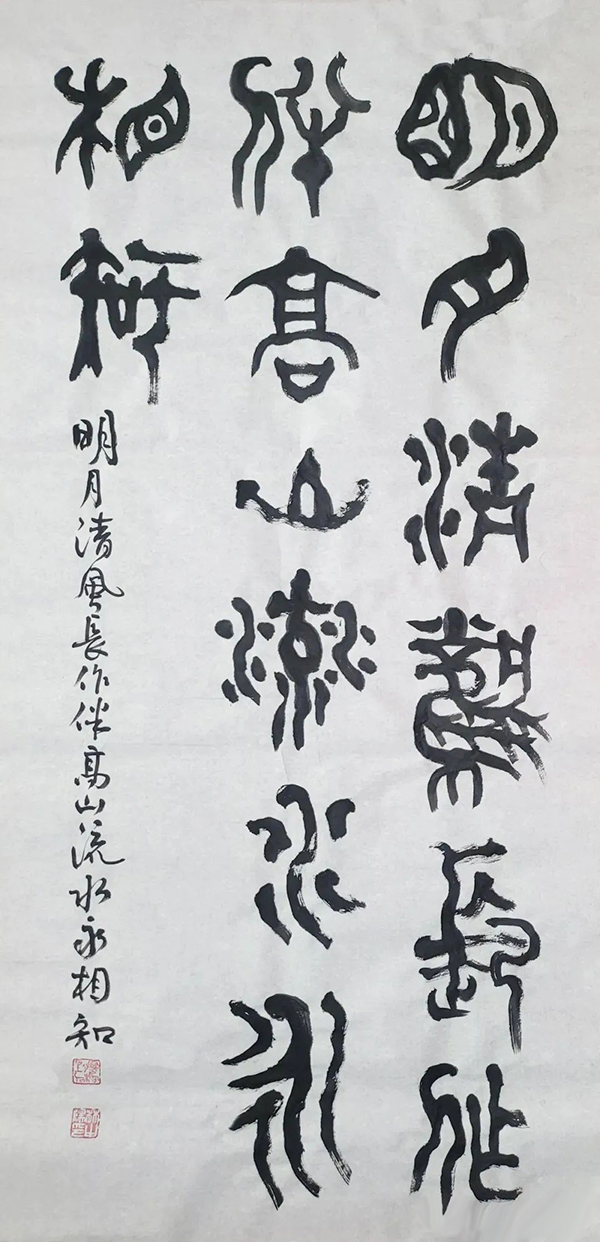 明月清風長作
伴高山流水永
相知
明月清風長作伴高山流水永相知